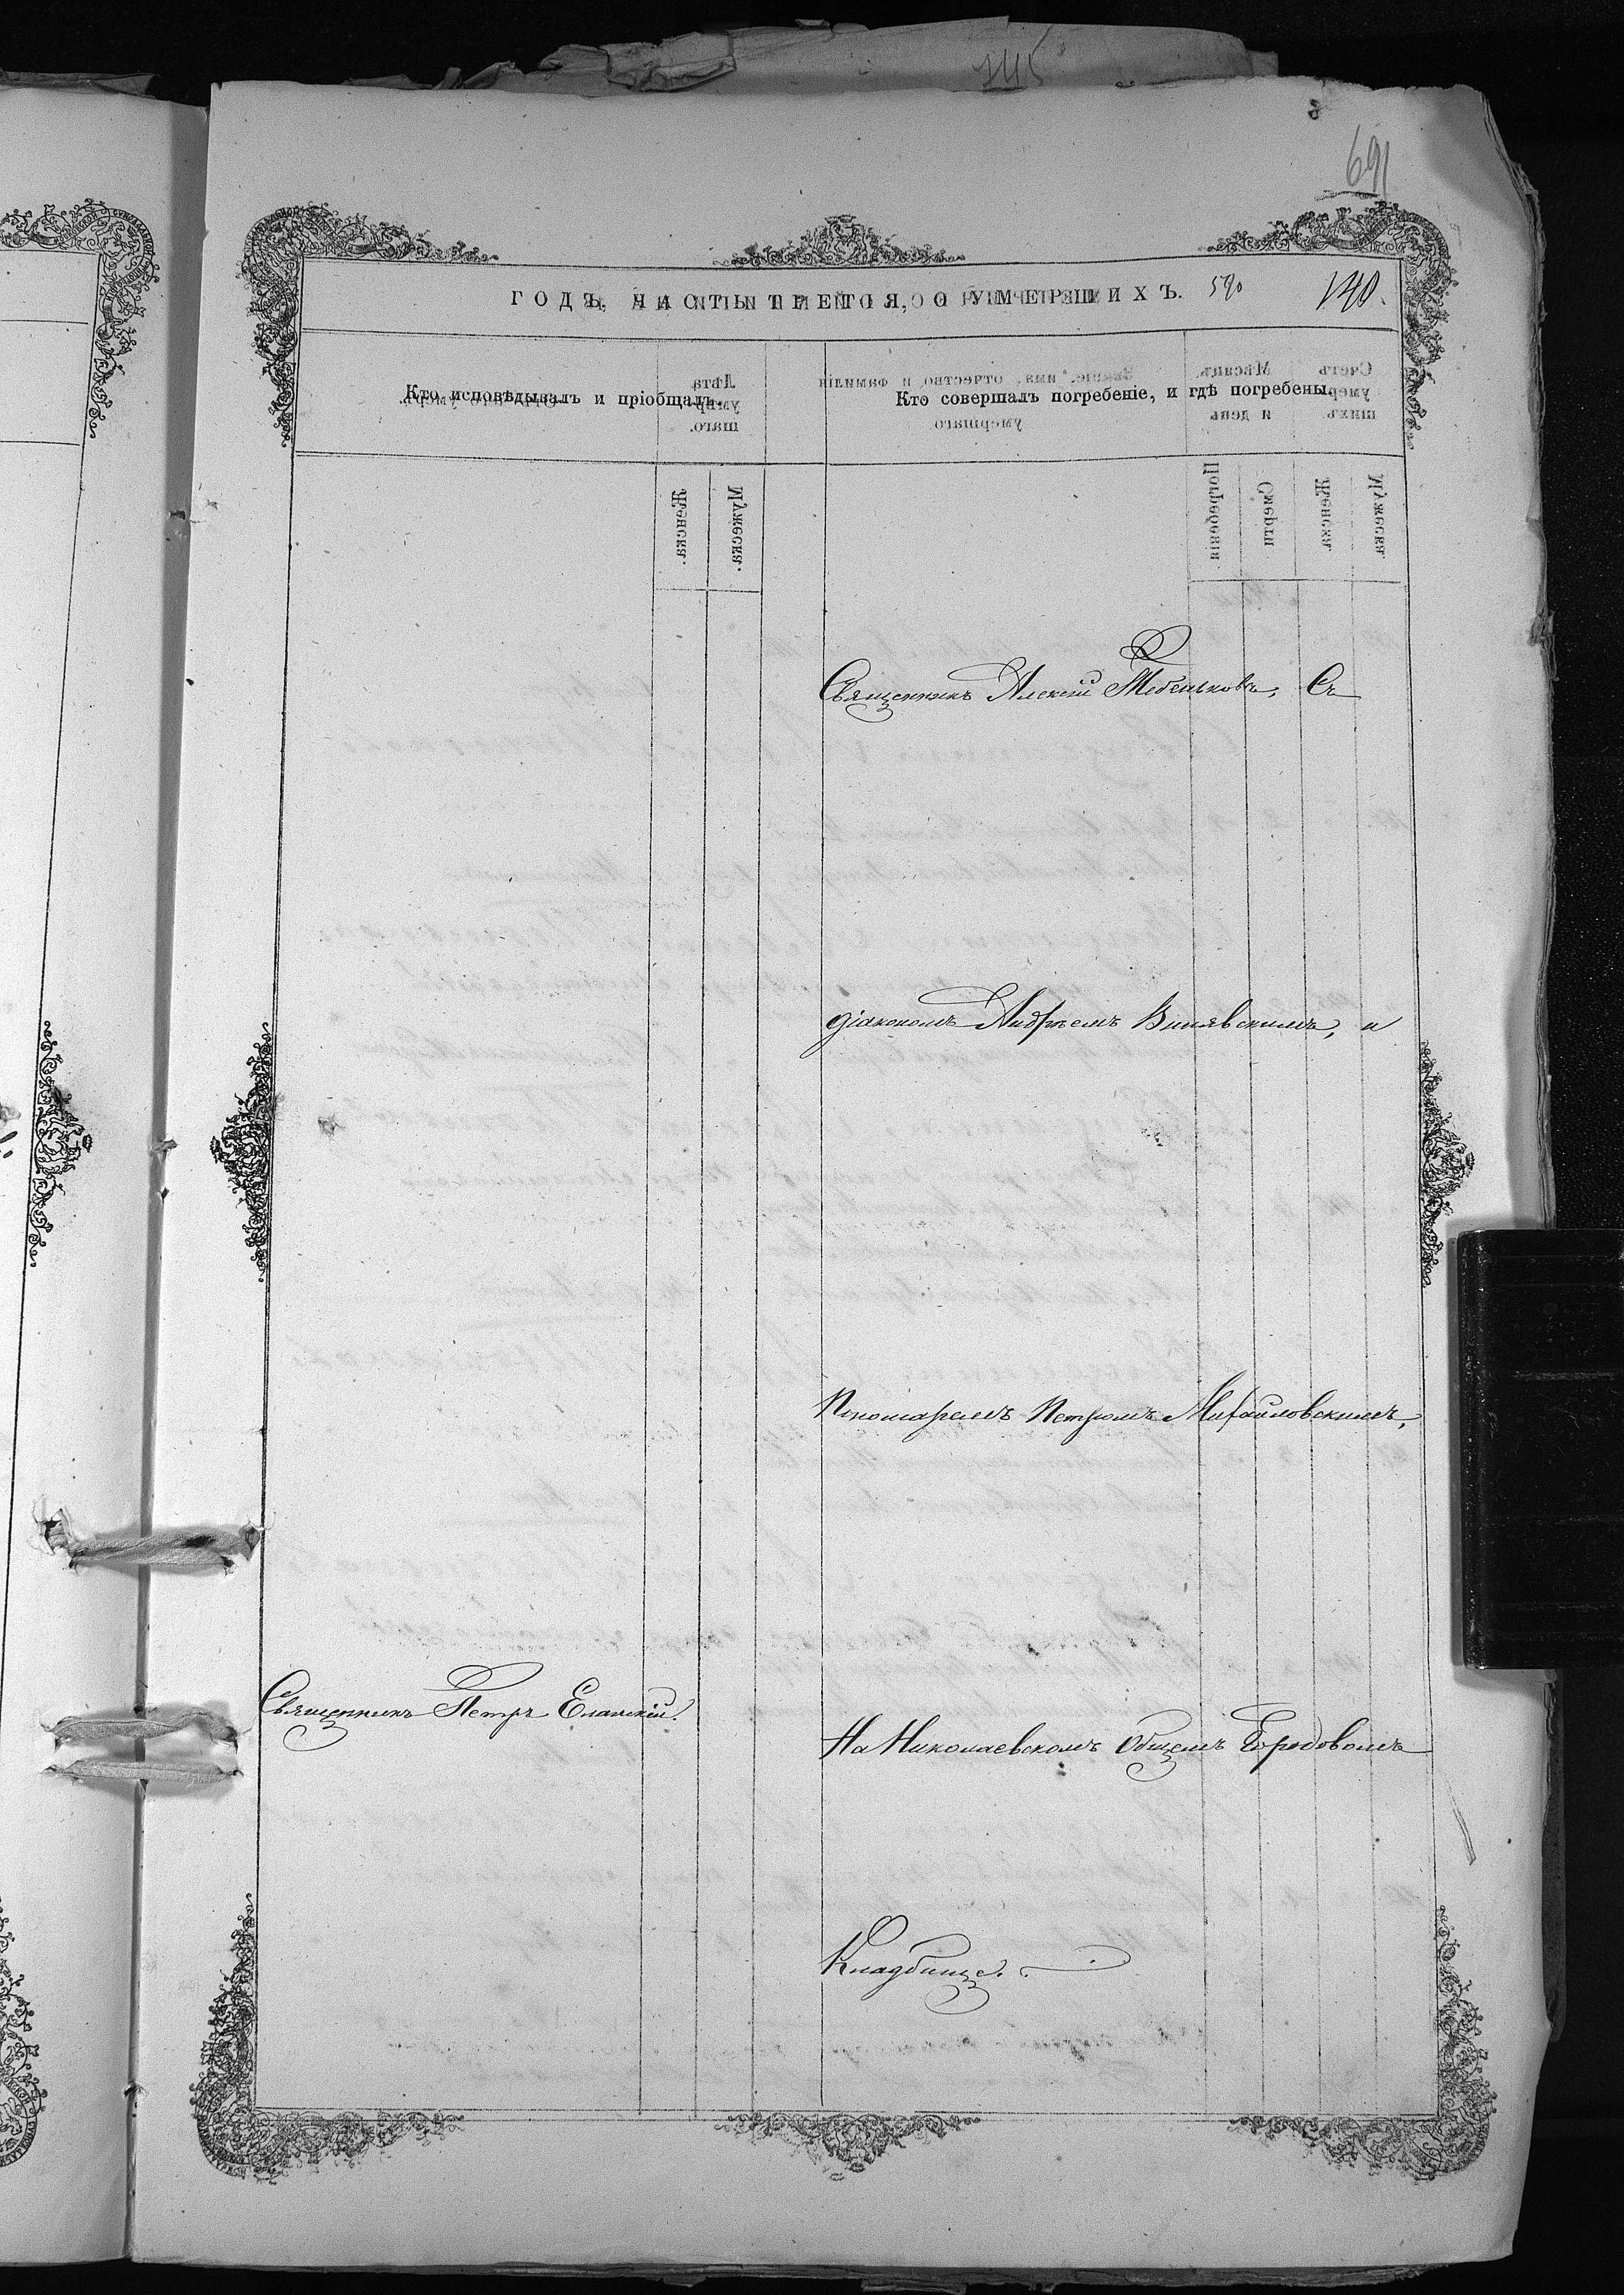 145
691
ГОДЪ, ЧАСТЬ ТРЕТІЯ, О УМЕРШИХЪ. 590 140.
Кто исповѣдывалъ и пріобщалъ.
Кто совершалъ погребеніе, и гдѣ погребены.
Священникъ Алексій Тебеньковъ, Съ
діакономъ Андреемъ Винявскимъ, и
Пономаремъ Петромъ Михайловскимъ,
Священникъ Петръ Еланскій.
На Николаевскомъ Общемъ Городовомъ
Кладбище.